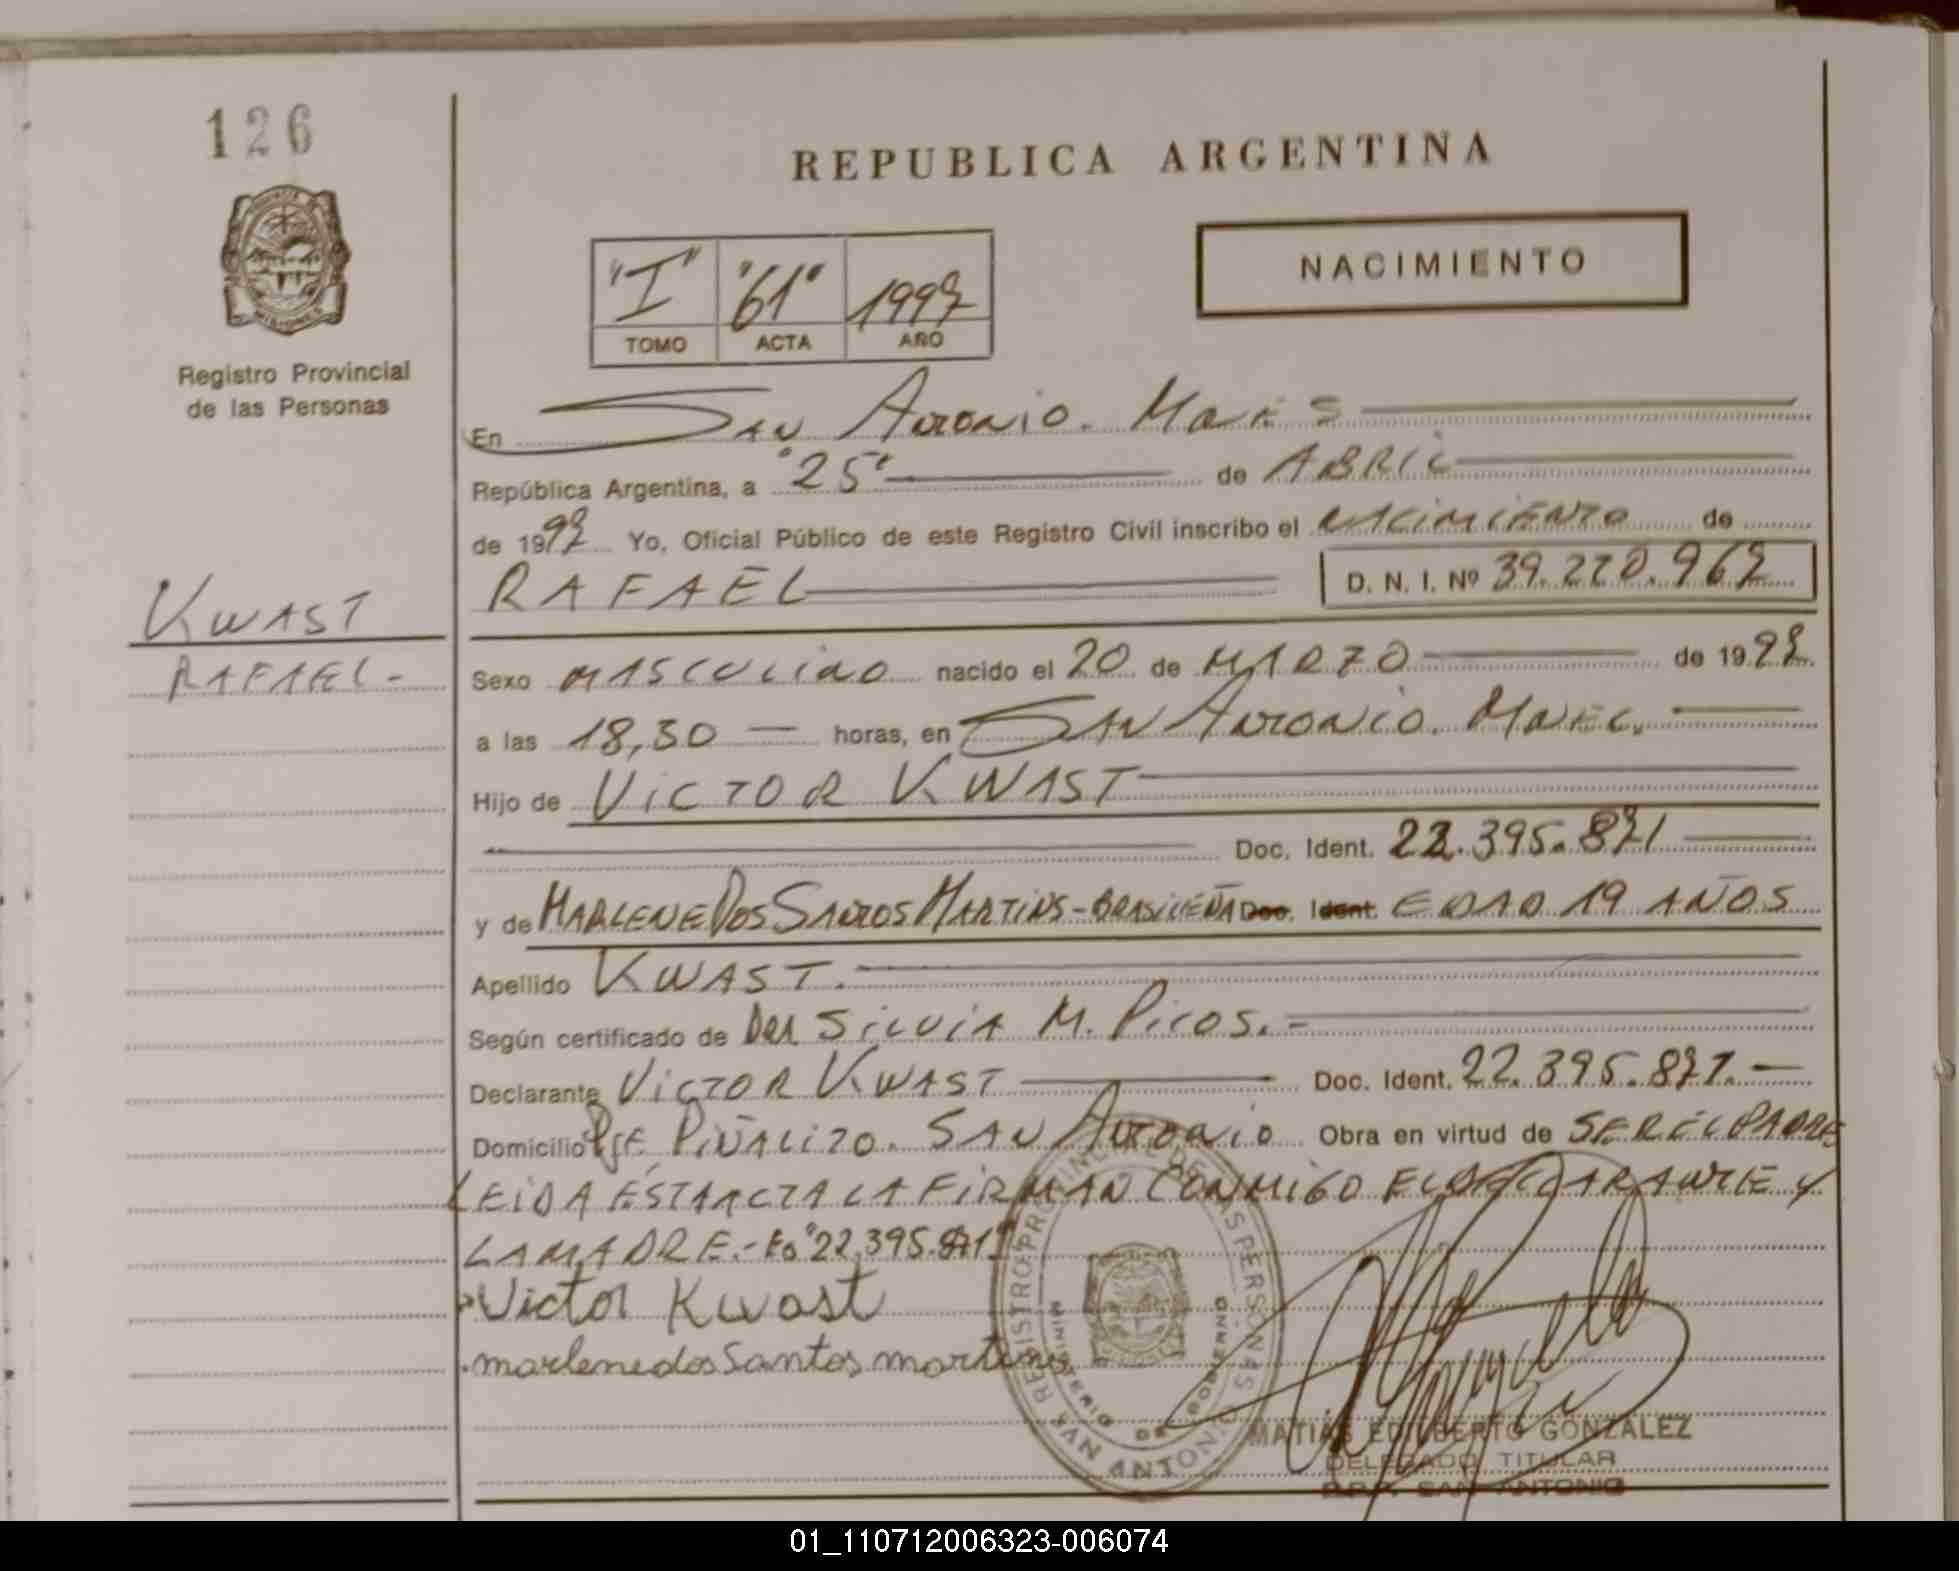 126
REPUBLICA ARGENTINA
NACIMIENTO
"I" "61" 1997
TOMO ACTA AÑO
MISIONES
Registro Provincial
de las Personas
En San Antonio. Mnes
República Argentina, a "25" de ABRIL
de 1997 Yo, Oficial Público de este Registro Civil inscribo el NACIMIENTO de
RAFAEL D. N. I. Nº 39.220.962
KWAST
RAFAEL-
Sexo MASCULINO nacido el 20 de MARZO de 1997.
a las 18,30 — horas, en SAN ANTONIO. Mnes.
Hijo de VICTOR KWAST
Doc. Ident. 22.395.871
y de MARLENE DOS SANTOS MARTINS - BRASILEÑA Doc. Ident. EDAD 19 AÑOS
Apellido KWAST.
Según certificado de Der SILVIA M. PICOS.-
Declarante VICTOR KWAST Doc. Ident. 22.395.871.—
Domicilio PJE PIÑALITO. SAN ANTONIO Obra en virtud de SER EL PADRE
LEIDA ESTA ACTA LA FIRMAN CONMIGO EL DECLARANTE Y
LA MADRE.- Eo "22.395.871"
Victor Kwast
marlene dos Santos martins
REGISTRO PROVINCIAL DE LAS PERSONAS
MINISTERIO DE GOBIERNO
SAN ANTONIO
MATIAS EDILBERTO GONZALEZ
DELEGADO TITULAR
R.P.P. SAN ANTONIO
01_110712006323-006074